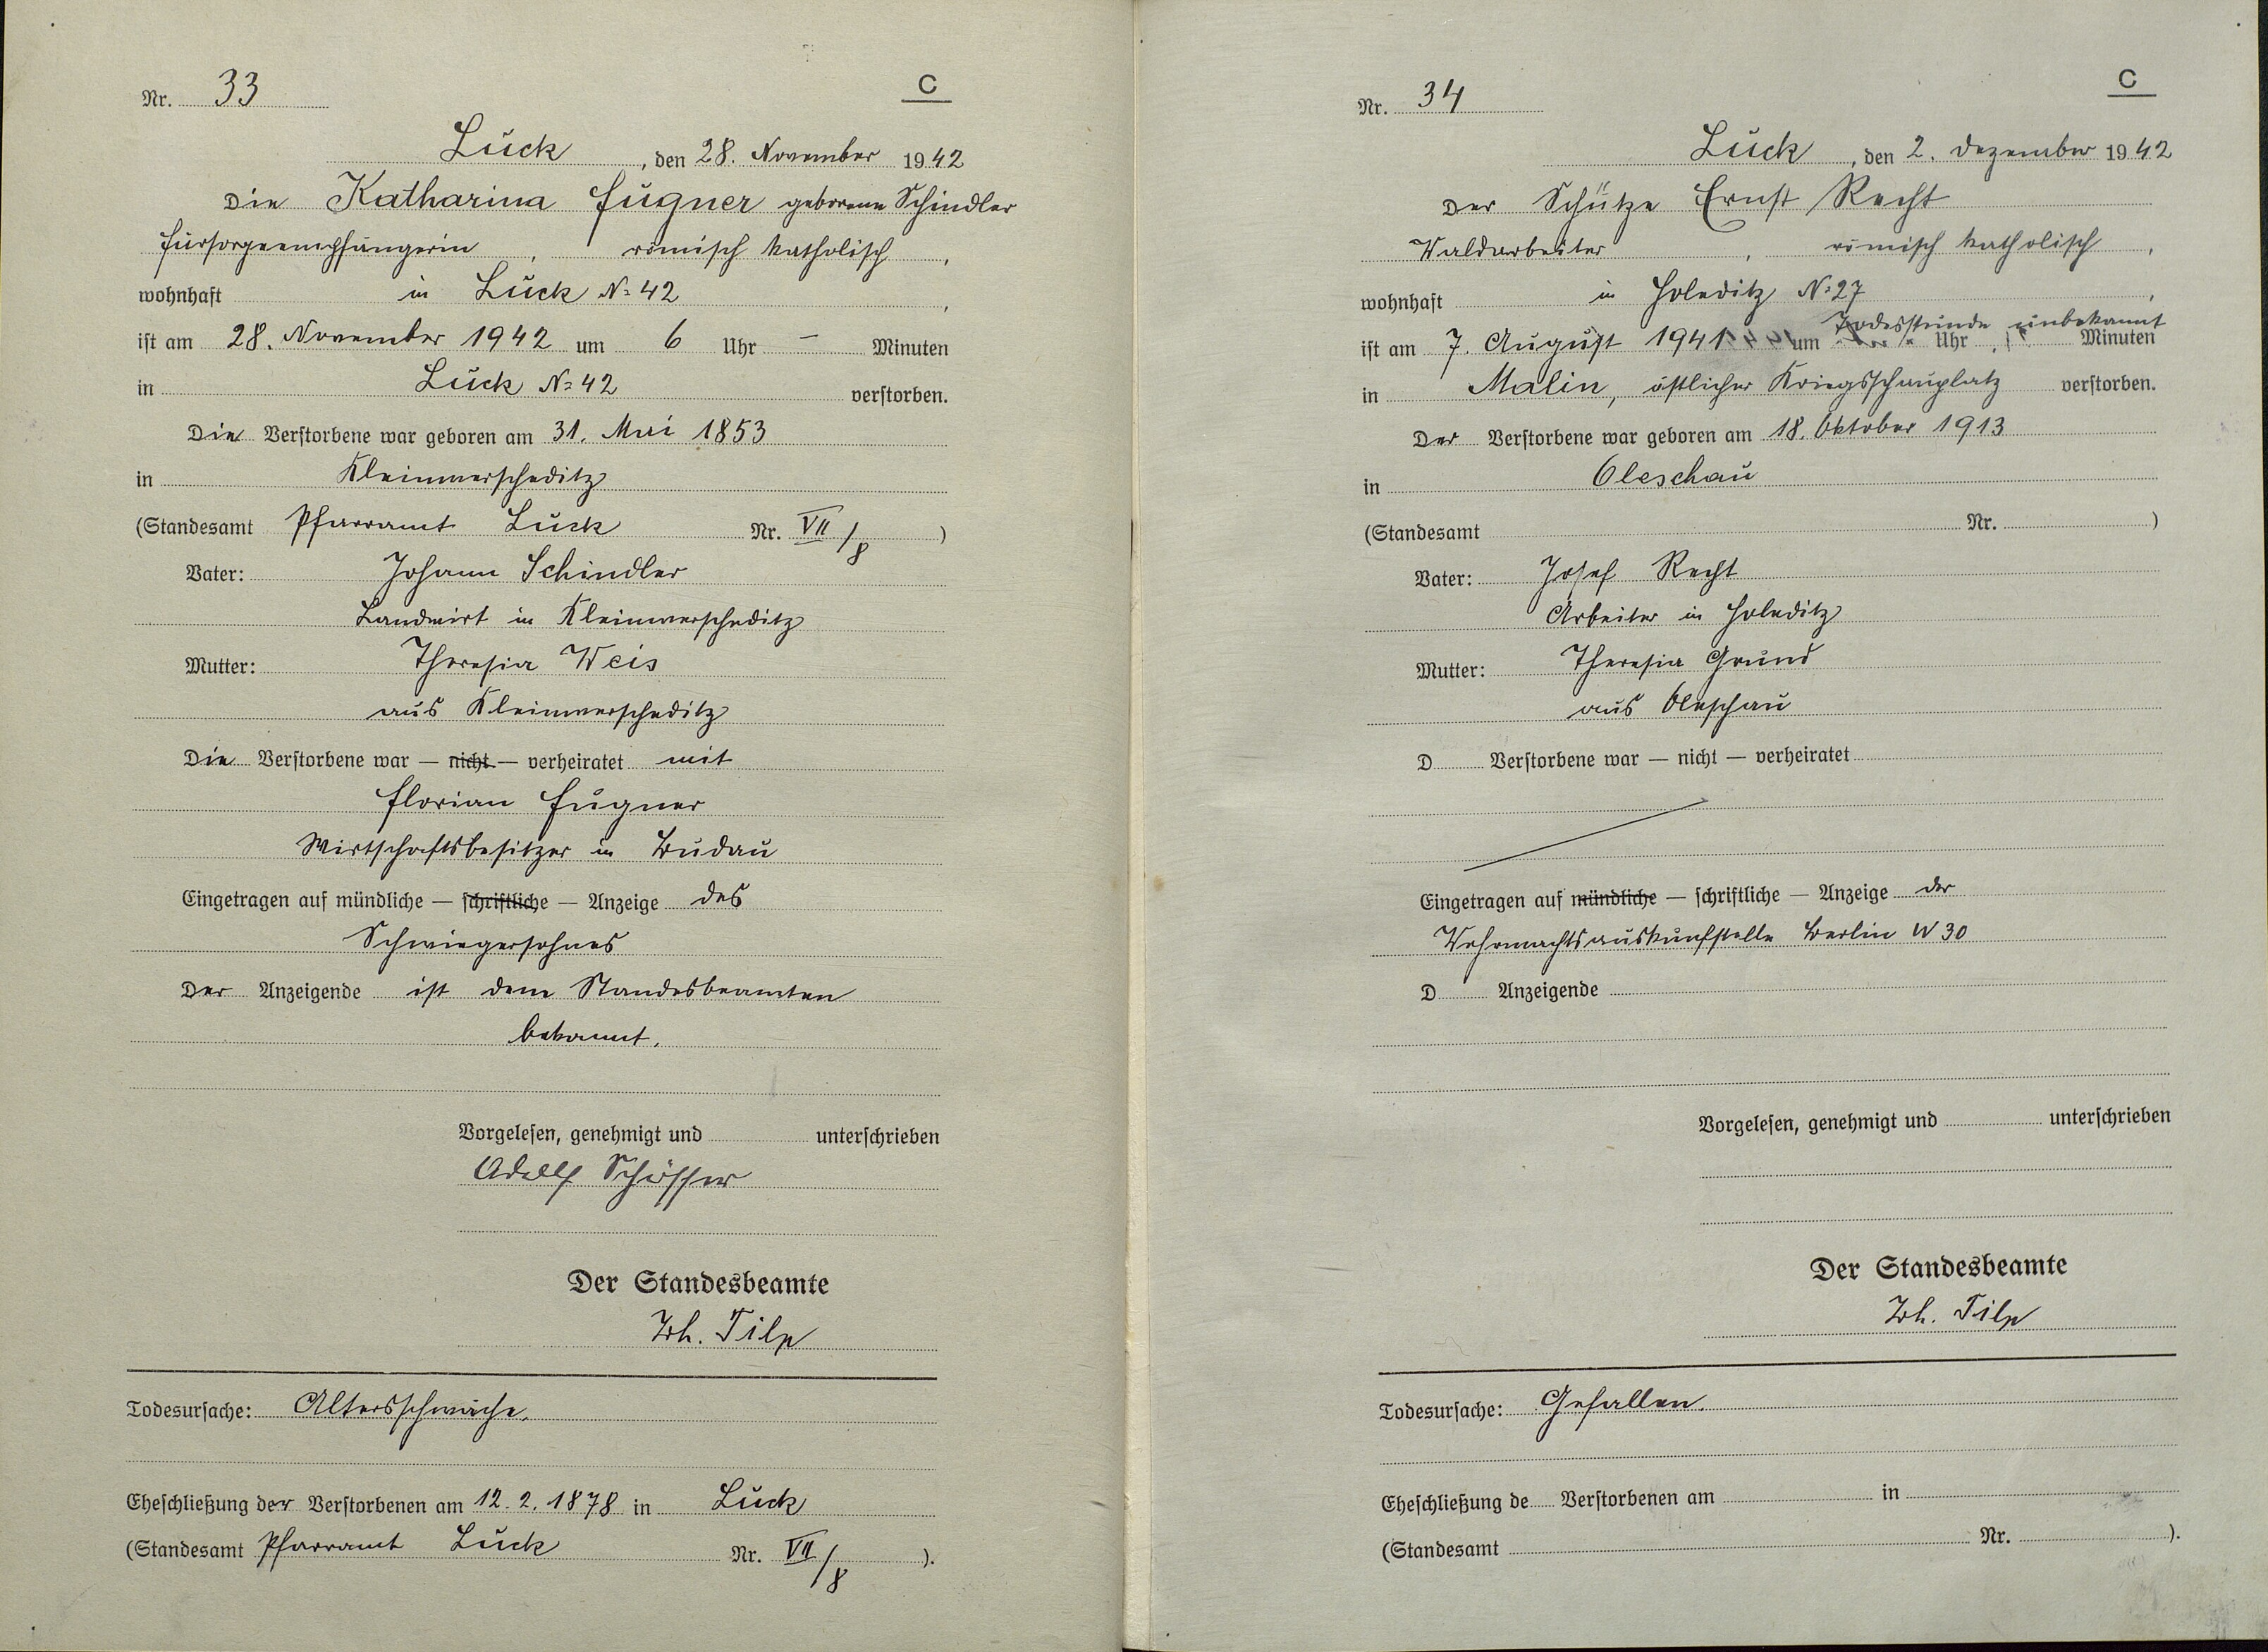 Nr. 33
C
Luck, den 28. November 1942
Die Katharina Fugner geborene Schindler
Fürsorgeempfängerin, römisch katholisch,
wohnhaft in Luck No 42,
ist am 28. November 1942 um 6 Uhr — Minuten
in Luck No 42 verstorben.
Die Verstorbene war geboren am 31. Mai 1853
in Kleinwerscheditz
(Standesamt Pfarramt Luck Nr. VII/8)
Vater: Johann Schindler
Landwirt in Kleinwerscheditz
Mutter: Theresia Weis
aus Kleinwerscheditz
Die Verstorbene war — nicht — verheiratet mit
Florian Fugner
Wirtschaftsbesitzer in Budau
Eingetragen auf mündliche — schriftliche — Anzeige des
Schwiegersohnes
Der Anzeigende ist dem Standesbeamten
bekannt.
Vorgelesen, genehmigt und unterschrieben
Adolf
Der Standesbeamte
Tilp
Todesursache: Altersschwäche.
Eheschließung der Verstorbenen am 12. 2. 1878 in Luck
(Standesamt Pfarramt Luck Nr. VII/8).
Nr. 34
C
Luck, den 2. Dezember 1942
Der Schütze Ernst Recht
Waldarbeiter, römisch katholisch,
wohnhaft in Holeditz No 27,
Todesstunde unbekannt
ist am 7. August 1941 um Uhr Minuten
in Malin, östlicher Kriegsschauplatz verstorben.
Der Verstorbene war geboren am 18. Oktober 1913
in Oleschau
(Standesamt Nr. )
Vater: Josef Recht
Arbeiter in Holeditz
Mutter: Theresia Grund
aus Oleschau
D Verstorbene war — nicht — verheiratet
Eingetragen auf mündliche — schriftliche — Anzeige der
Wehrmachtsauskunfstelle Berlin W 30
D Anzeigende
Vorgelesen, genehmigt und unterschrieben
Der Standesbeamte
Tilp
Todesursache: Gefallen.
Eheschließung de Verstorbenen am in
(Standesamt Nr. ).